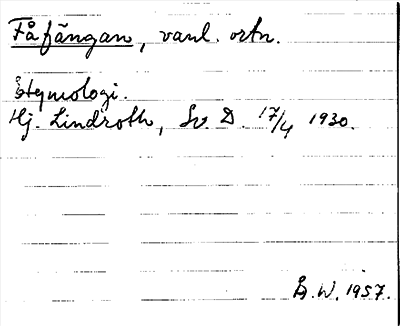 Fåfängan, vanl. ortn.
Etymologi.
Hj. Lindroth, Sv. D. 17/4 1930.
Å. W. 1957.